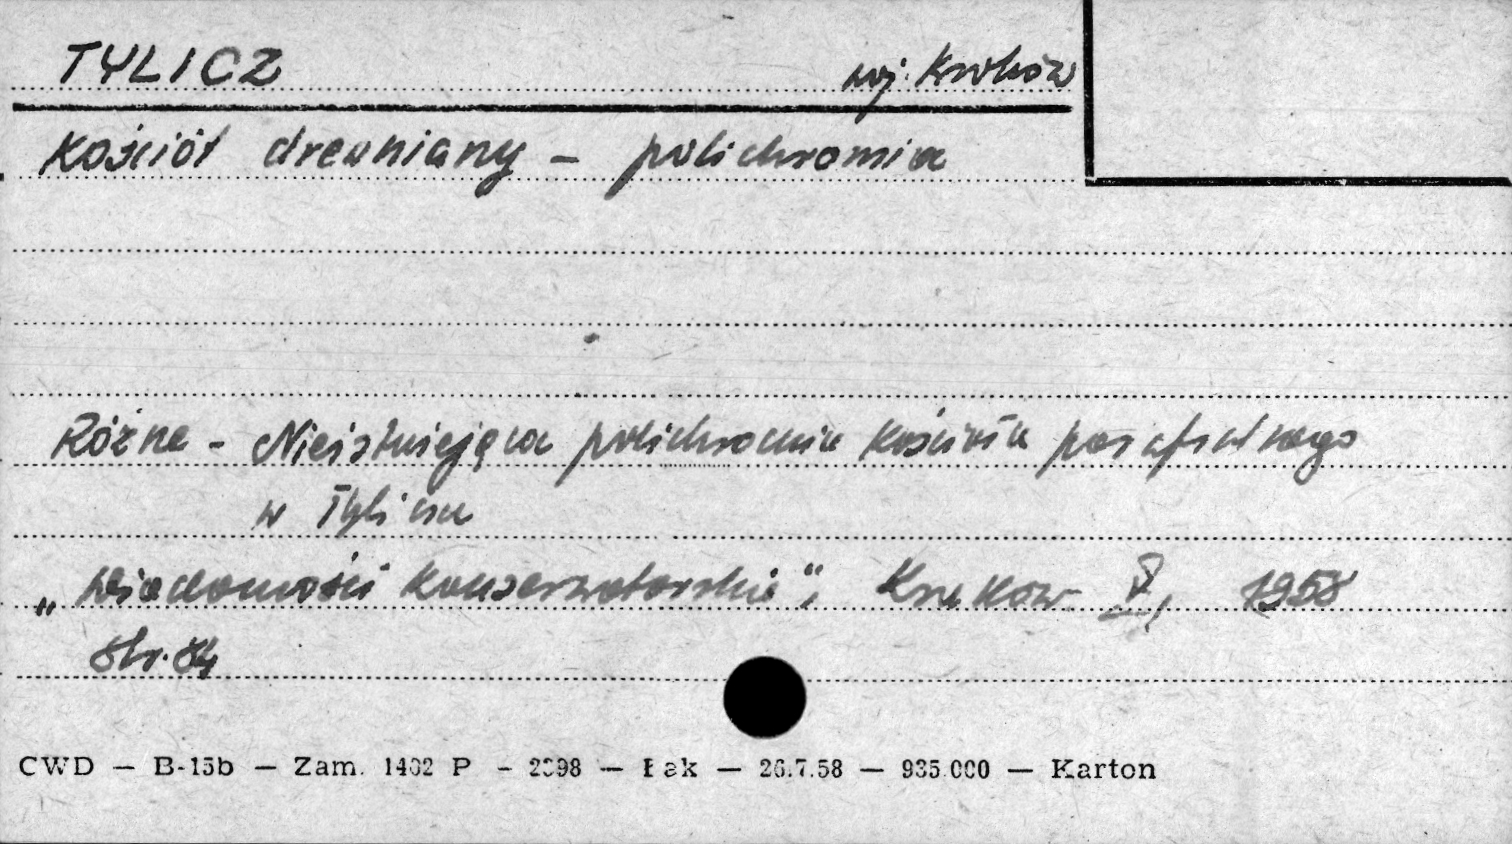 TYLICZ woj. Kraków
Kościół drewniany – polichromia
Różne - Nieistniejąca polichromia kościoła parafialnego
w Tyliczu
„Wiadomości Konserwatorskie“, Kraków V, 1958
str. 84
CWD — B-15b — Zam. 1402 P - 2398 — — 26.7.58 — 935.000 — Karton